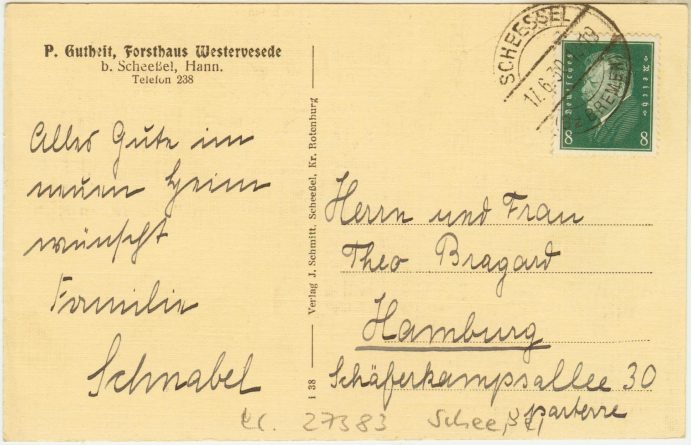 P. Gutheit, Forsthaus Westervesede
b. Scheeßel, Hann.
Telefon 238
Alles Gute im
neuen Heim
wünscht
Familie
Schnabel
i 38 Verlag J. Schmitt, Scheeßel, Kr. Rotenburg
SCHEESSEL
17.6.30
BREMEN
Deutsches Reich
8 8
Herrn und Frau
Theo Bragard
Hamburg
Schäferkampsallee 30
parterre
27383 Scheeßel